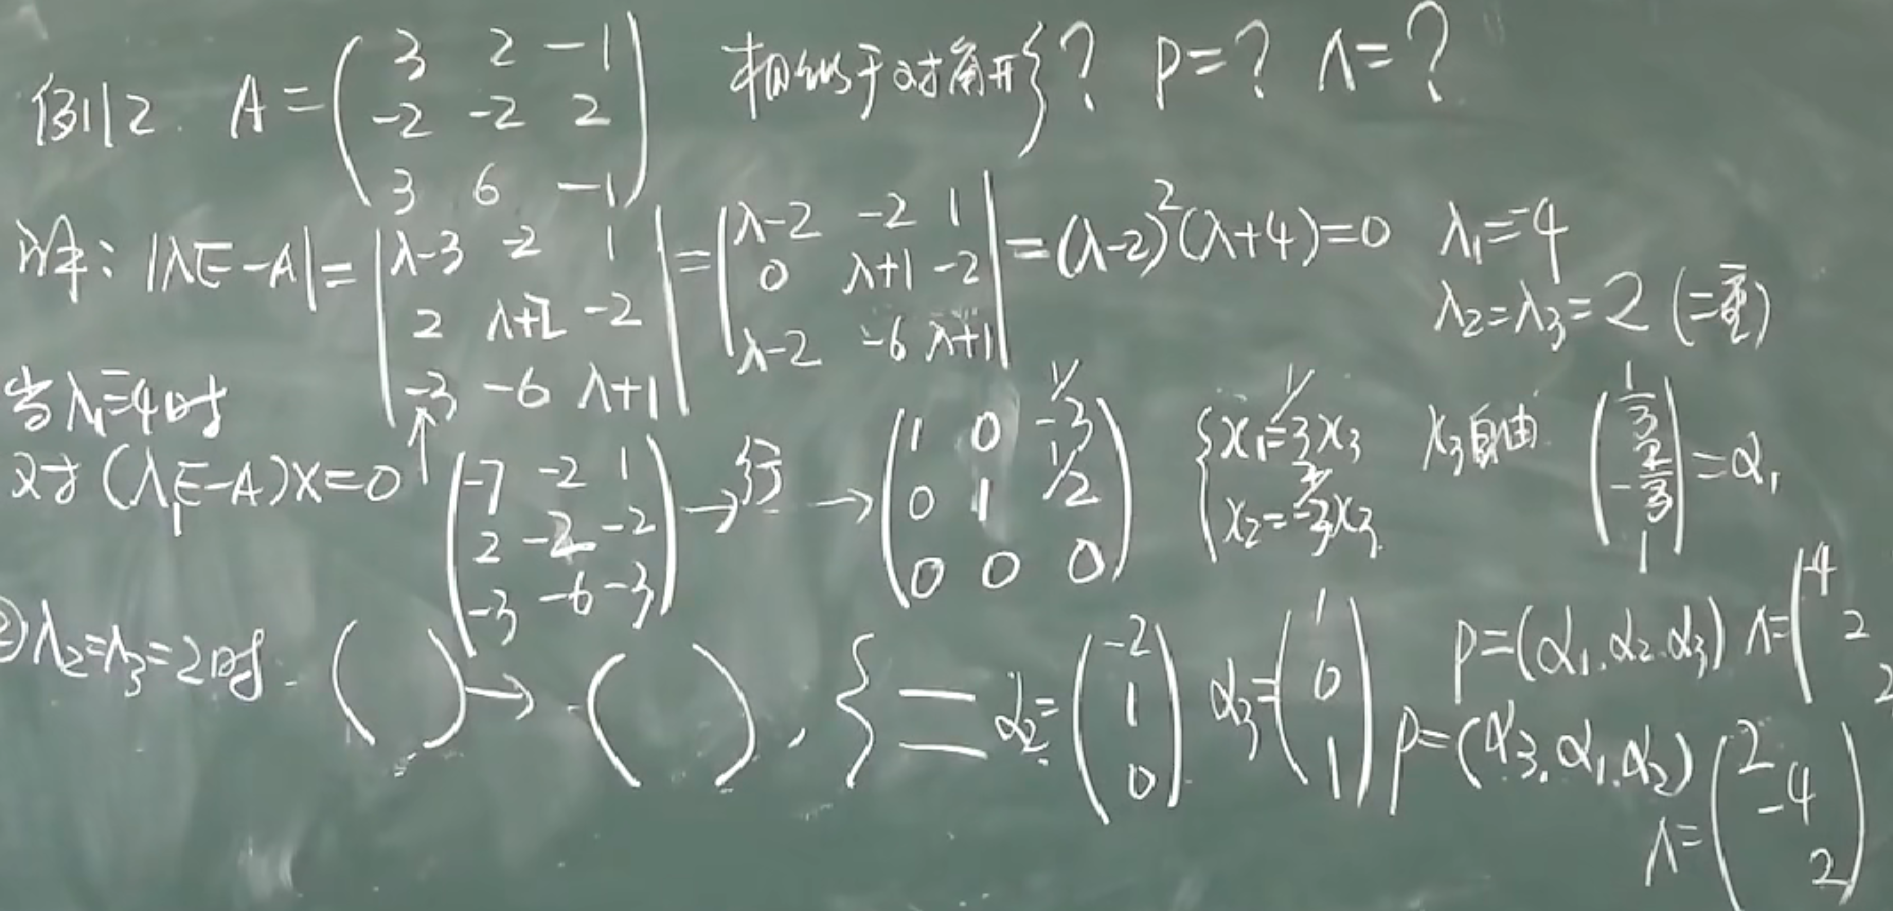 例12. A=(3 2 -1; -2 -2 2; 3 6 -1) 相似于对角形? P=? Λ=?
解: |λE-A|=|λ-3 -2 1; 2 λ+2 -2; -3 -6 λ+1|=|λ-2 -2 1; 0 λ+1 -2; λ-2 -6 λ+1|=(λ-2)²(λ+4)=0 λ₁=-4
λ₂=λ₃=2 (二重)
当λ₁=-4时
对(λ₁E-A)X=0 (-7 -2 1; 2 -2 -2; -3 -6 -3)→行→(1 0 -1/3; 0 1 1/2; 0 0 0) {x₁=1/3x₃ x₂=-2/3x₃ x₃自由 (1/3; -2/3; 1)=α₁
②λ₂=λ₃=2时. ( )→( ), { = α₂=(-2; 1; 0) α₃=(1; 0; 1) P=(α₁.α₂.α₃) Λ=(-4 2 2
P=(α₃.α₁.α₂)
Λ=(2 -4 2)